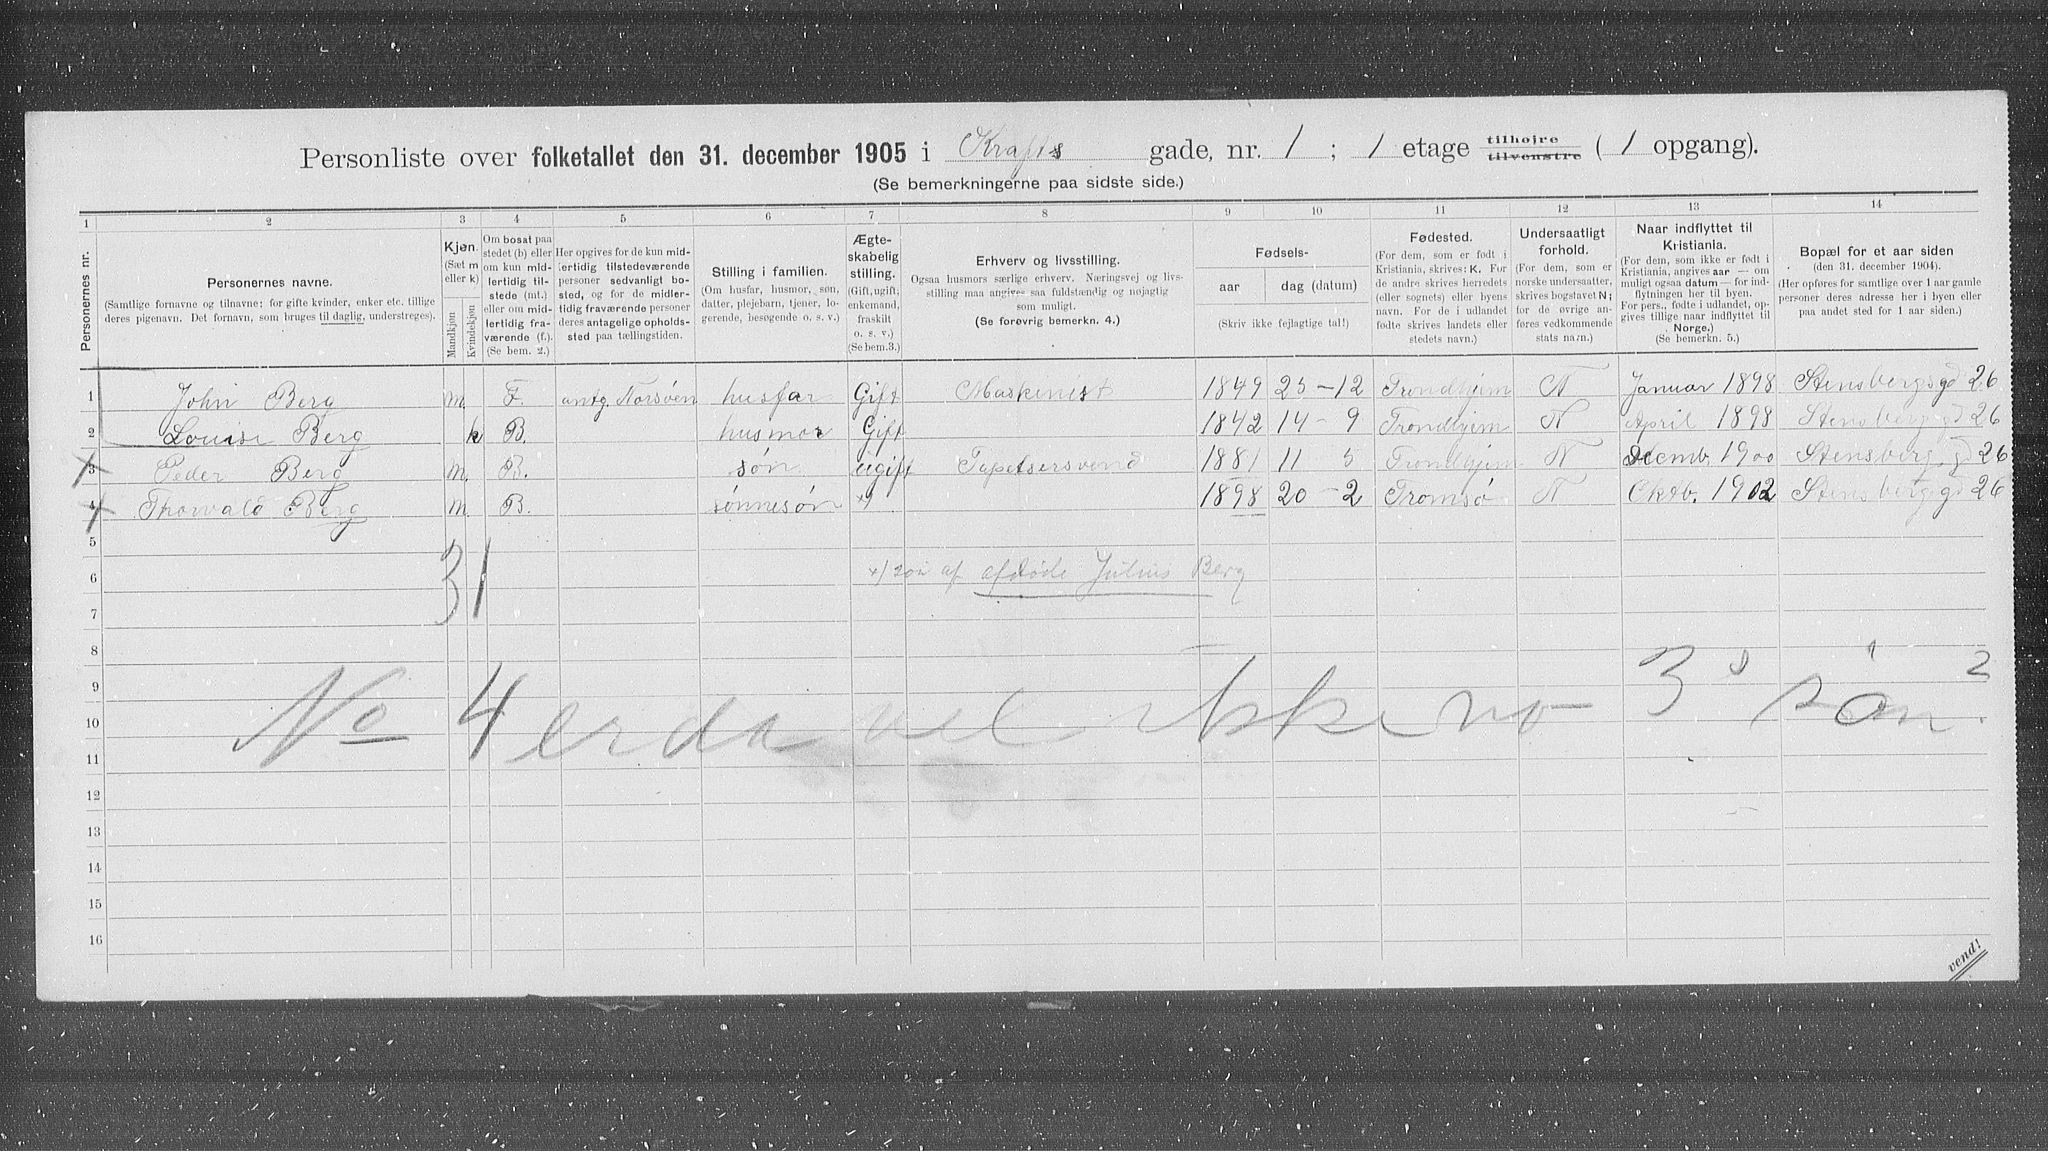 Personliste over folketallet den 31. december 1905 i Krafts gade, nr. 1 ; 1 etage tilhøjre tilvenstre ( 1 opgang).
(Se bemerkningerne paa sidste side.)
1 2 3 4 5 6 7 8 9 10 11 12 13 14
Personernes nr.
Personernes navne.
(Samtlige fornavne og tilnavne; for gifte kvinder, enker etc. tillige
deres pigenavn. Det fornavn, som bruges til daglig, understreges).
Kjøn.
(Sæt m
eller k)
Mandkjøn
Kvindekjøn
Om bosat paa
stedet (b) eller
om kun mid-
lertidig til-
stede (mt.)
eller om mid-
lertidig fra-
værende (f.).
(Se bem. 2.)
Her opgives for de kun mid-
lertidig tilstedeværende
personer sedvanligt bo-
sted, og for de midler-
tidig fraværende personer
deres antagelige opholds-
sted paa tællingstiden.
Stilling i familien.
(Om husfar, husmor, søn,
datter, plejebarn, tjener, lo-
gerende, besøgende o. s. v.)
Ægte-
skabelig
stilling.
(Gift, ugift,
enkemand,
fraskilt
o. s. v.)
(Se bem.3.)
Erhverv og livsstilling.
Ogsaa husmors særlige erhverv. Næringsvej og livs-
stilling maa angives saa fuldstændig og nøjagtig
som muligt.
(Se forøvrig bemerkn. 4.)
Fødsels-
aar
dag (datum)
(Skriv ikke fejlagtige tal!)
Fødested.
(For dem, som er født i
Kristiania, skrives: K. For
de andre skrives herredets
(eller sognets) eller byens
navn. For de i udlandet
fødte skrives landets eller
stedets navn.)
Undersaatligt
forhold.
(For dem, som er
norske undersaatter,
skrives bogstavet N;
for de øvrige an-
føres vedkommende
stats navn.)
Naar indflyttet til
Kristiania.
(For dem, som ikke er født i
Kristiania, angives aar — om
muligt ogsaa datum — for ind-
flytningen her til byen.
For pers., fødte i udlandet, op-
gives tillige naar indflyttet til
Norge.)
(Se bemerkn. 5.)
Bopæl for et aar siden
(den 31. december 1904).
(Her opføres for samtlige over 1 aar gamle
personer deres adresse her i byen eller
paa andet sted for 1 aar siden.)
1 John Berg m. F. antg. Torsöen husfar Gift Maskinist 1849 25-12 Trondhjem N Januar 1898 Stensbergsgd 26
2 Louise Berg k B. husmor Gift 1842 14-9 Trondhjem N April 1898 Stensbergsgd 26
3 Peder Berg m. B. søn ugift Tapetsersvend 1881 11 5 Trondhjem N Decemb. 1900 Stensbergsgd 26
4 Thorvald Berg m. B. sønnesøn x) 1898 20-2 Tromsö N Oktb. 1902 Stensbergsgd 26
5
6 x/ søn af afdøde Julius Berg
31
7
8
9
No 4 er da vel ikke no 3's søn?
10
11
12
13
14
15
16
vend!